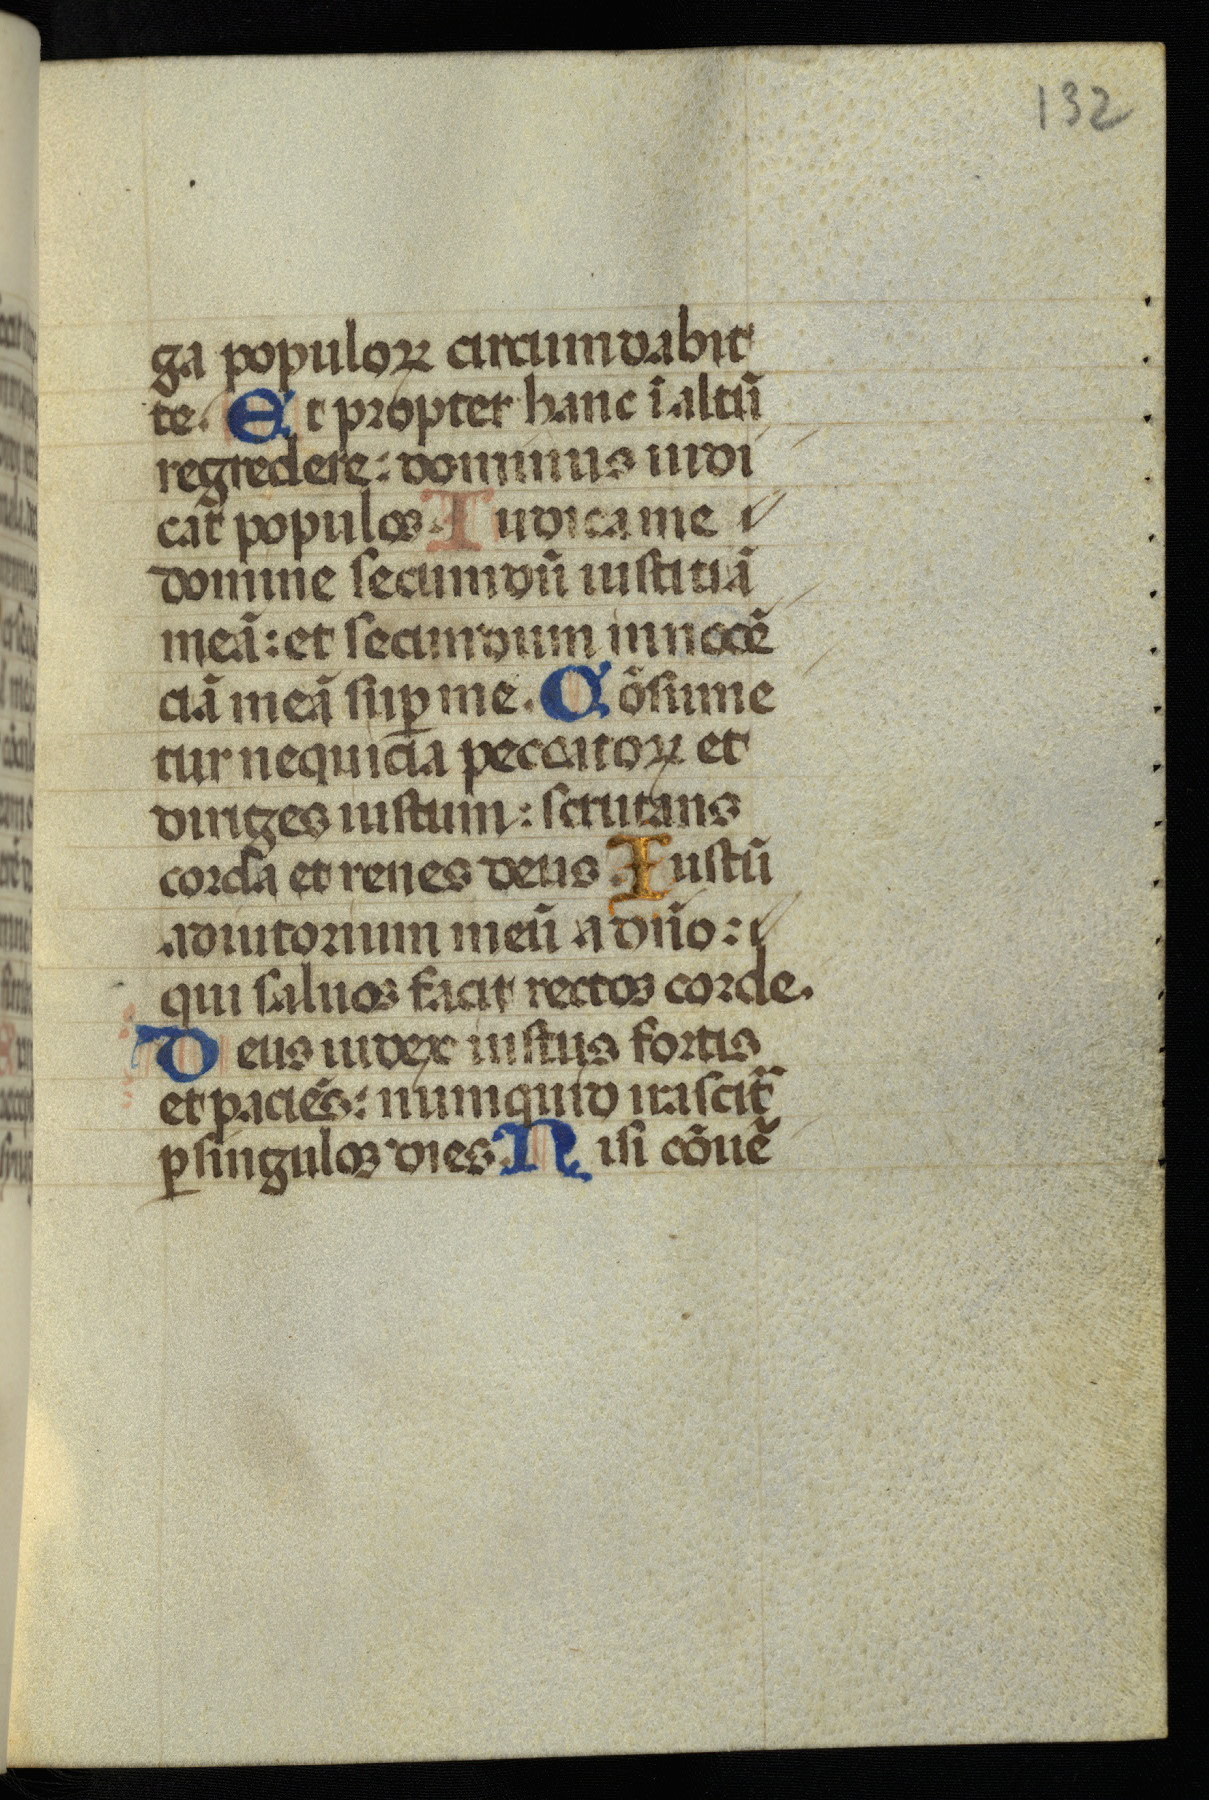 132
ga populoꝝ circumdabit
te. Et propter hanc ī altū
regredere: dominus iudi
cat̄ populos. Iudica me
domine secundū iustitiā
meā: et secundum innocē
ciā meā suꝑ me. Cōsume
tur nequicia peccatoꝝ et
diriges iustum: scrutans
corda et renes deus. Iustū
adiutorium meū a dn̄o:
qui saluos facit rectos corde.
Deus iudex iustus fortis
et paciēs: numquid irascit᷑
ꝑ singulos dies. Nisi cōuē